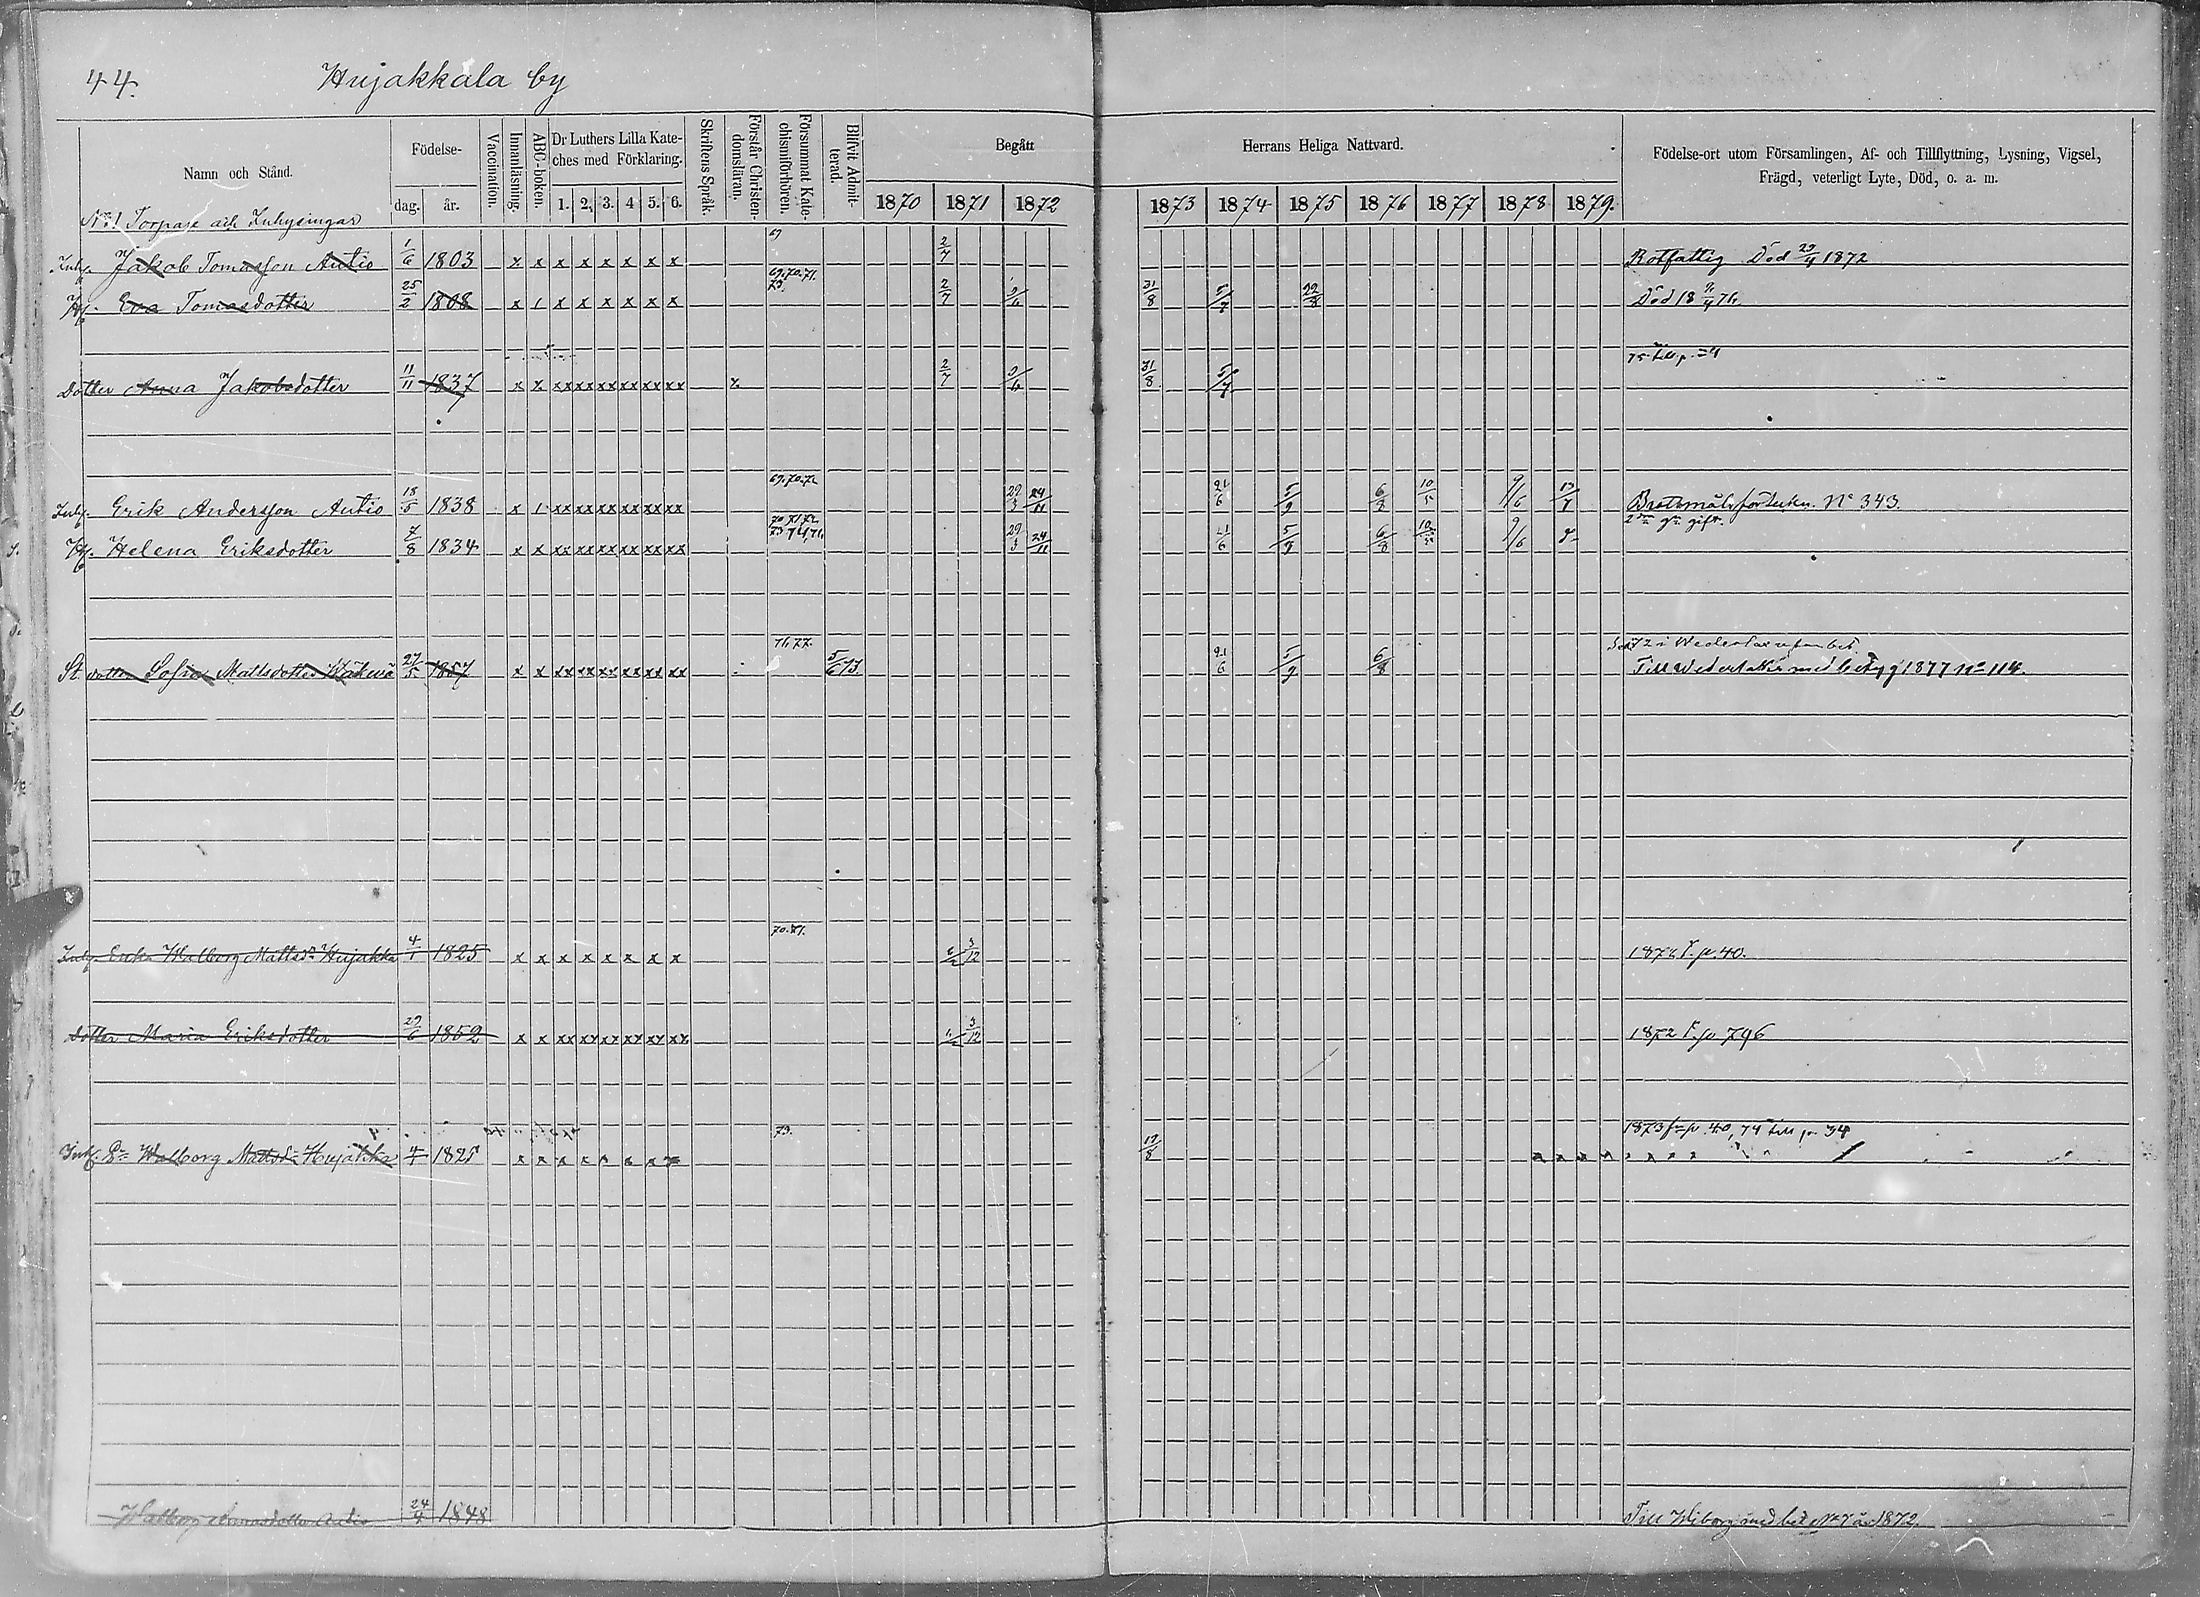 44. Hujakkala by
Namn och Stånd.
Födelse-
dag. år.
Vaccination.
Innanläsning.
ABC-boken.
Dr Luthers Lilla Kate-
ches med Förklaring.
1. 2. 3. 4 5. 6.
Skriftens Språk.
Förstår Christen-
domsläran.
Försummat Kate-
chismiförhören.
Blifvit Admit-
terad.
Begått
1870 1871 1872
Herrans Heliga Nattvard.
1873 1874 1875 1876 1877 1878 1879.
Födelse-ort utom Församlingen, Af- och Tillflyttning, Lysning, Vigsel,
Frägd, veterligt Lyte, Död, o. a. m.
No 1 Torpare och Inhysingar
69
Inh. Jakob Tomasson Autio 1/6 1803 x x x x x x x x 2/7 Rotfattig Död 1872
69.70.71.
73.
H. Eva Tomasdotter 25/2 1808 x 1 x x x x x x 2/7 31/8 5/7 22/8 Död 18 76.
Dotter Anna Jakobsdotter 11/11 1837 x x xx xx xx xx xx xx x 2/7 31/8 5/7
69.70.72
Inh. Erik Andersson Autio 18/5 1838 x 1 xx xx xx xx xx xx 29/3 24/11 21/6 5/9 6/8 9/6 No 343.
70 71 72
2dra g. gift.
H. Helena Eriksdotter 7/8 1834 x x xx xx xx xx xx xx 29/3 24/11 21/6 5/9 6/8 9/6
71, 77.
St. dotter Sofia Mattsdotter 27/5 1857 x x xx xx xx xx xx xx 5/6 73. 21/6 5/9 6/8 Till Wederlaks med betyg 1877 no 114.
70.71.
Inh. Walborg Mattsdr Hujakka 4/1 1825 x x x x x x x x 3/12 p. 40.
Dotter Maria Eriksdotter 29/6 1852 x x xx xx xx xx xx xx 3/12 1872 T. p. 796
73.
1873 fr. p. 40, 74 till p. 34
Inh. Walborg Mattsdr Hujakka 4/1 1825 x x x x x x x x
Walborg Autio 24/4 1848 Till Wiborg med bet. No 7 år 1872